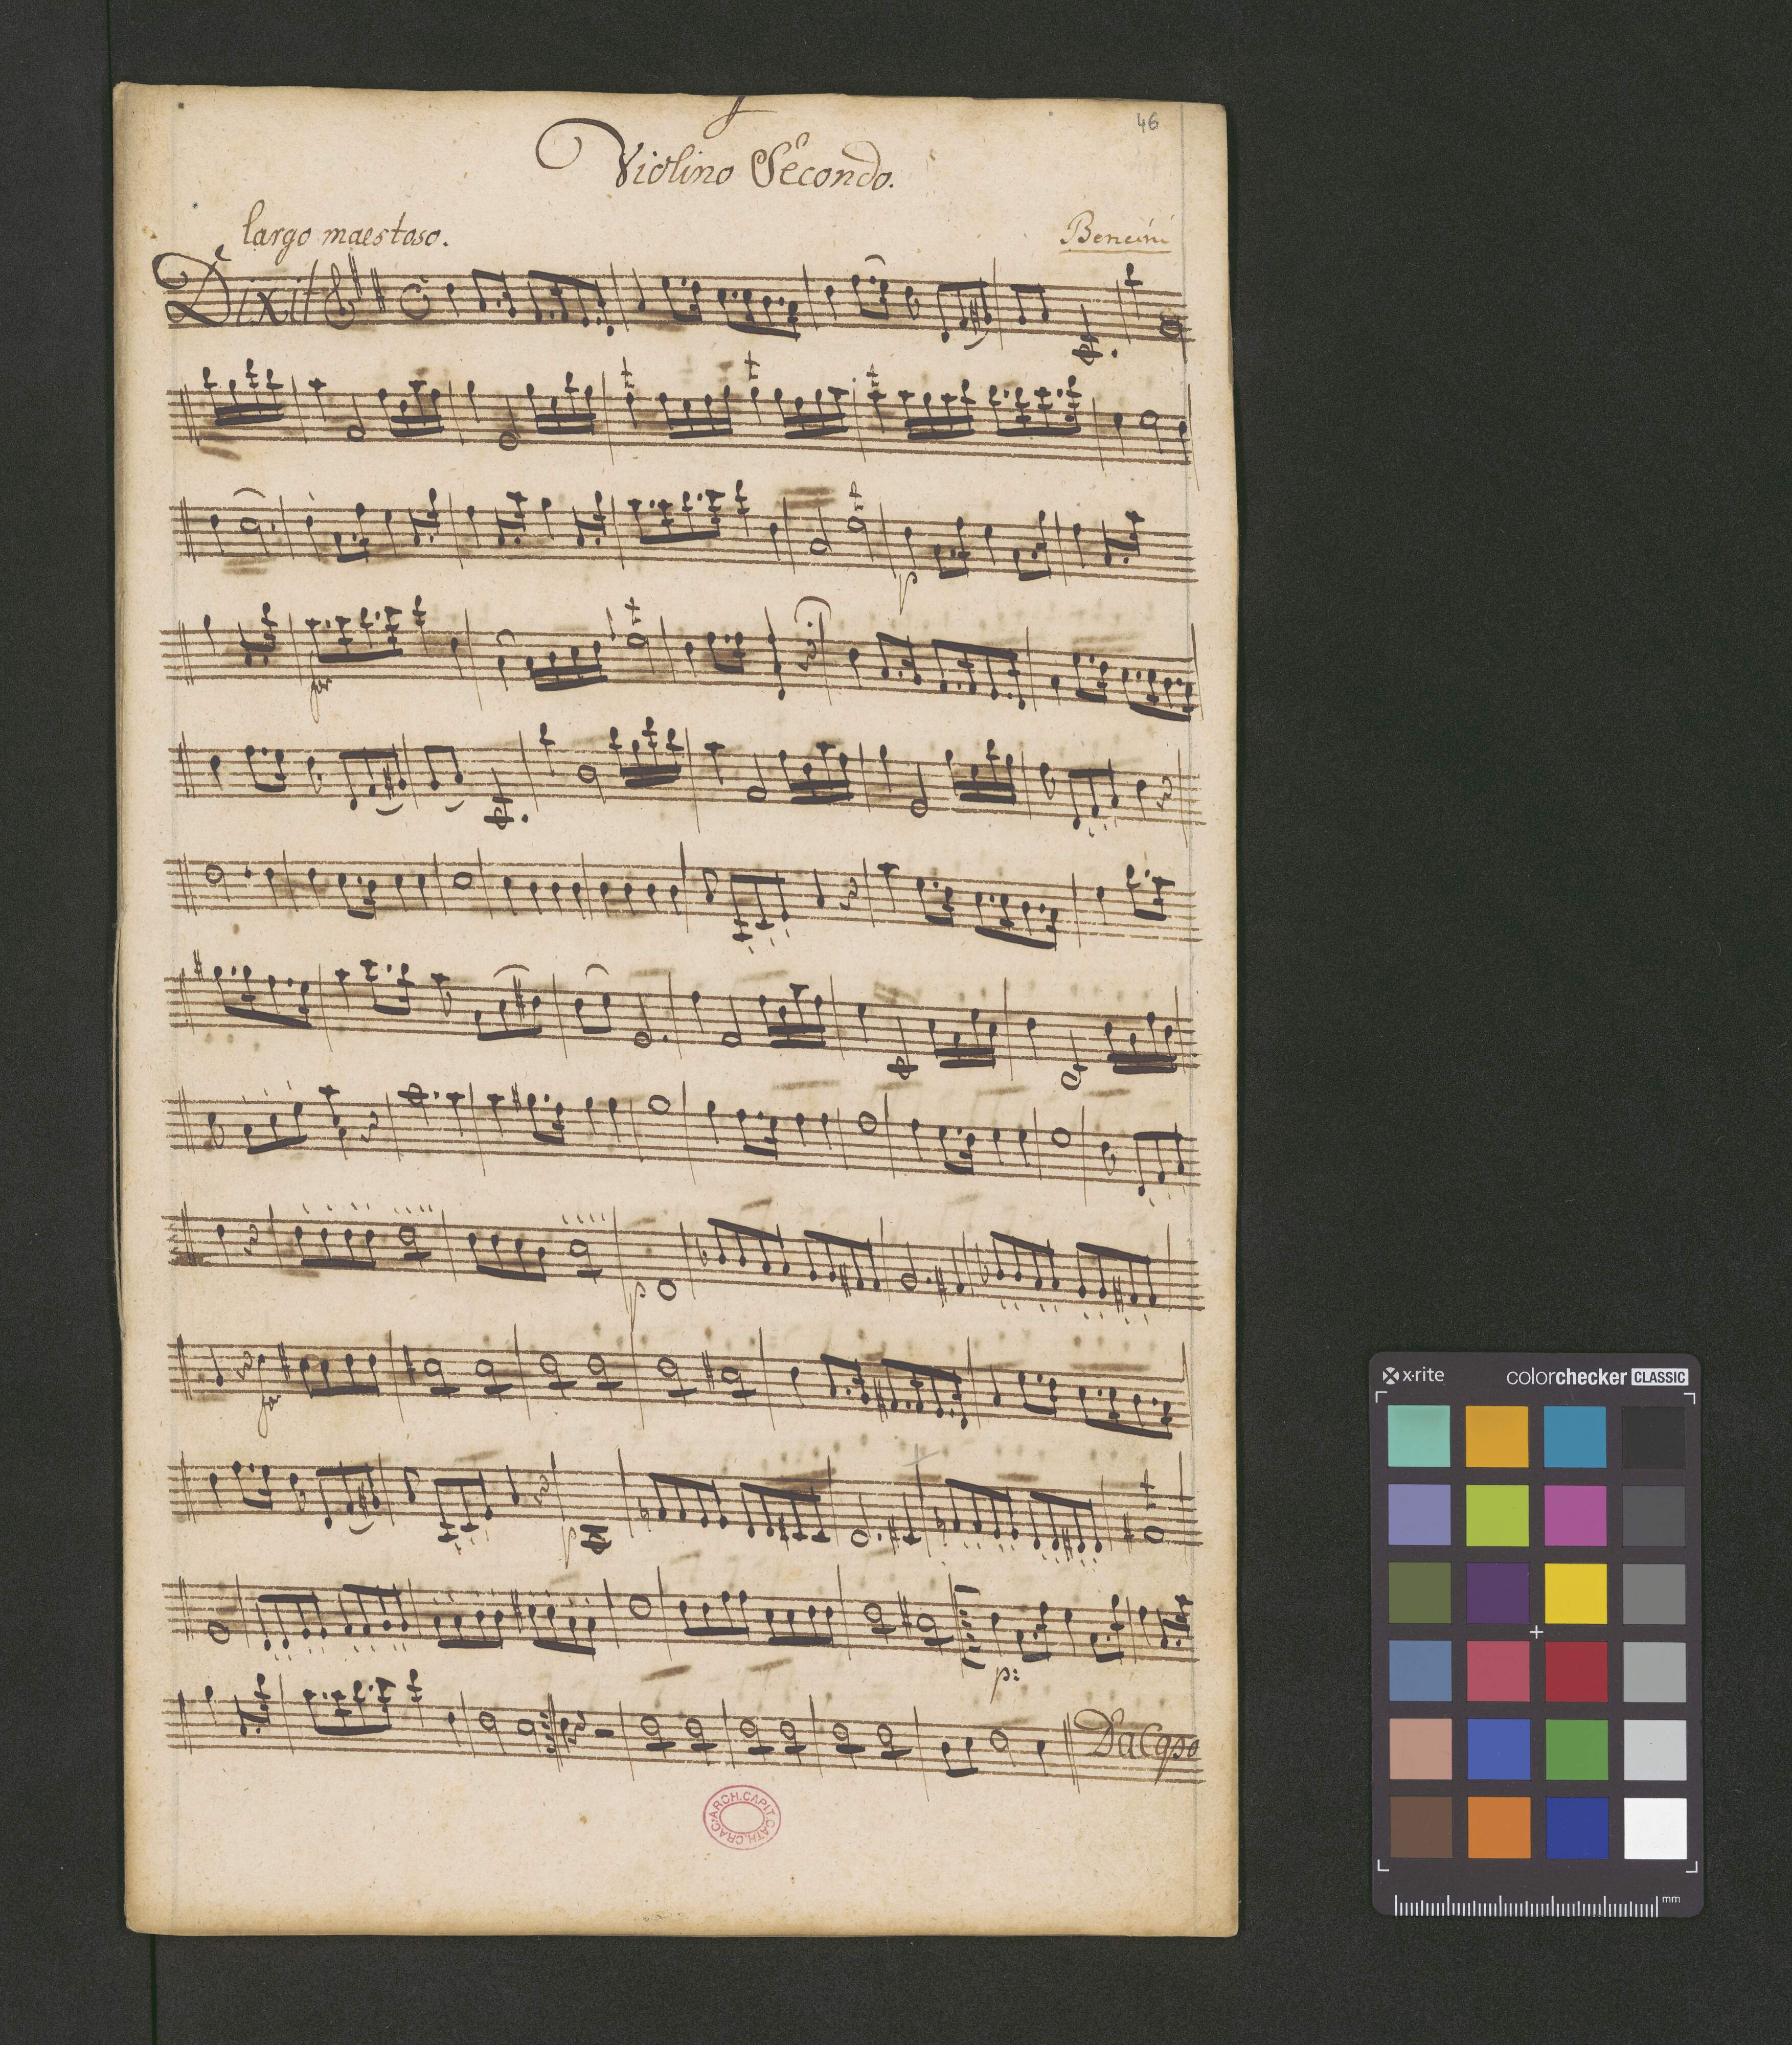 46
Violino Secondo.
largo maestoso.
Bencini
Dixit
p
for
p
for
p
p:
Da Capo
ARCH. CAPIT. CATH. CRAC.
x·rite colorchecker CLASSIC
mm